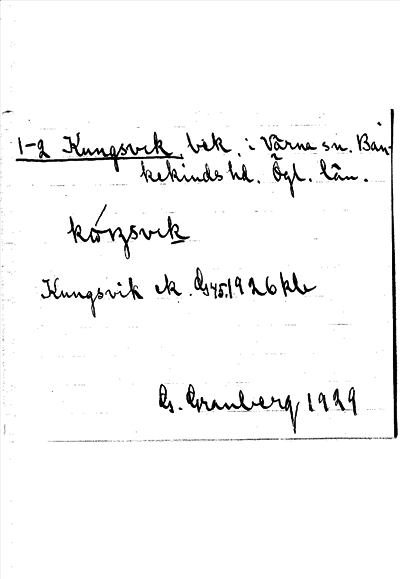 1-2 Kungsvik, bek. i Värna sn. Ban-
kekinds hd. Ögl. län.
Kungsvik ek. G45.1926 kle
G. Granberg 1929